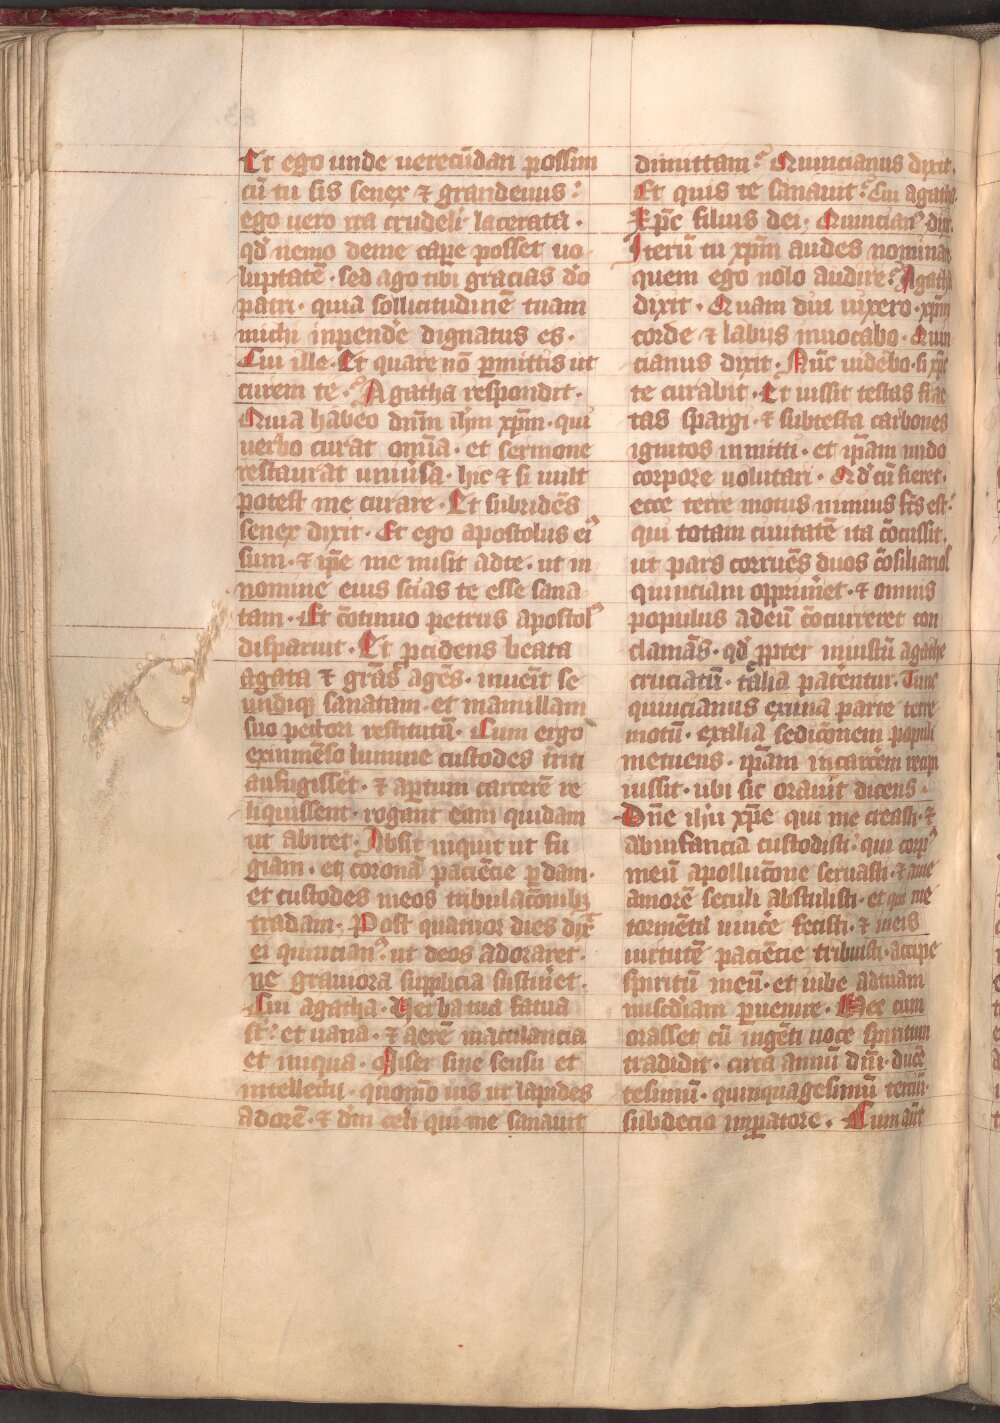 Et ego unde uerecūdari possim
cū tu sis senex ⁊ grandeuus :
ego uero ita crudelit͛ lacerata ·
qd̕ nemo deme cap̄e posset uo
luptatē · sed ago tibi gracias dn̄o
patri · quia sollicitudinē tuam
michi inpend̕e dignatus es ·
Cui ille · Et quare nō p̄mittis ut
curem te ? Agatha respondit ·
Quia habeo dn̄m ih̄m xp̄m · qui
uerbo curat om̄ia · et sermone
restaurat uniu̕sa · hic ⁊ si uult
potest me curare · Et subridēs
senex dixit · Et ego apostolus eiꝰ
sum · ⁊ ip̄e me misit adte · ut in
nomine eius scias te esse sana
tam · Et c̄otinuo petrus apostolꝰ
disparuit · Et p̄cidens beata
agata ⁊ gr̄as agēs · inuenīt se
undiqꝫ sanatam · et mamillam
suo pectori restitutā · Cum ergo
eximmēso lumine custodes t̕riti
aufugissēt · ⁊ ap̄tum carcerē re
liquissent · rogant eam quidam
ut abiret · Absit inquit ut fu
giam · et coronā paciēcie p̄dam ·
et custodes meos tribulac̄onibꝫ
tradam · Post quatuor dies dix̄
ei quincianꝰ ut deos adoraret ·
ne grauiora supplicia sustin̕et ·
Cui agatha · Verba tua fatua
st̄ : et uana · ⁊ aerē maculancia
et iniqua · Miser sine sensu et
intellectu · quom̄o uis ut lapides
adorē · ⁊ dm̄ celi qui me sanauit
dimittam ? Quincianus dixit ·
Et quis te sanauit ? Cui agatha
Xp̄c filius dei · Quincianꝰ dix̄ ·
Iterū tu xp̄m audes nominar̕
quem ego nolo audire ? Agatha
dixit · Quam diu uixero · xp̄m
corde ⁊ labiis inuocabo · Quin
cianus dixit · Nūc uidebo · si xp̄c
te curabit · Et iussit testas frac
tas spargi · ⁊ subtesta carbones
ignitos inmitti · et ip̄am nudo
corpore uolutari · Qd̕ cū fieret ·
ecce terre motus nimius fc̄s est :
qui totam ciuitatē ita c̄ocussit ·
ut pars corruēs duos c̄osiliarios
quinciani opprim̕et · ⁊ omnis
populus adeū c̄ocurreret con
clamās · qd̕ ꝓpter iniustū agathe
cruciatū · talia patēntur · Tunc
quincianus exuna parte terre
motū · exalia sedic̄onem populi
metuens · ip̄am incarcēm recipi
iussit · ubi sic orauit dicens ·
Dn̄e ih̄u xp̄e qui me creasti · ⁊
abinfancia custodisti : qui corpꝰ
meū apolluc̄one seruasti · ⁊ ame
amorē seculi abstulisti · et qui me
tormēta uinc̕e fecisti · ⁊ meis
uirtutē paciēcie tribuisti · accipe
spiritū meū · et iube adtuam
misc̄diam p̄uenire · Hec cum
orasset cū ingēti uoce spiritum
tradidit · circa annū dn̄i · ducē
tesimū · quinquagesimū tertiū ·
subdecio imp̄atore · Cum aūt